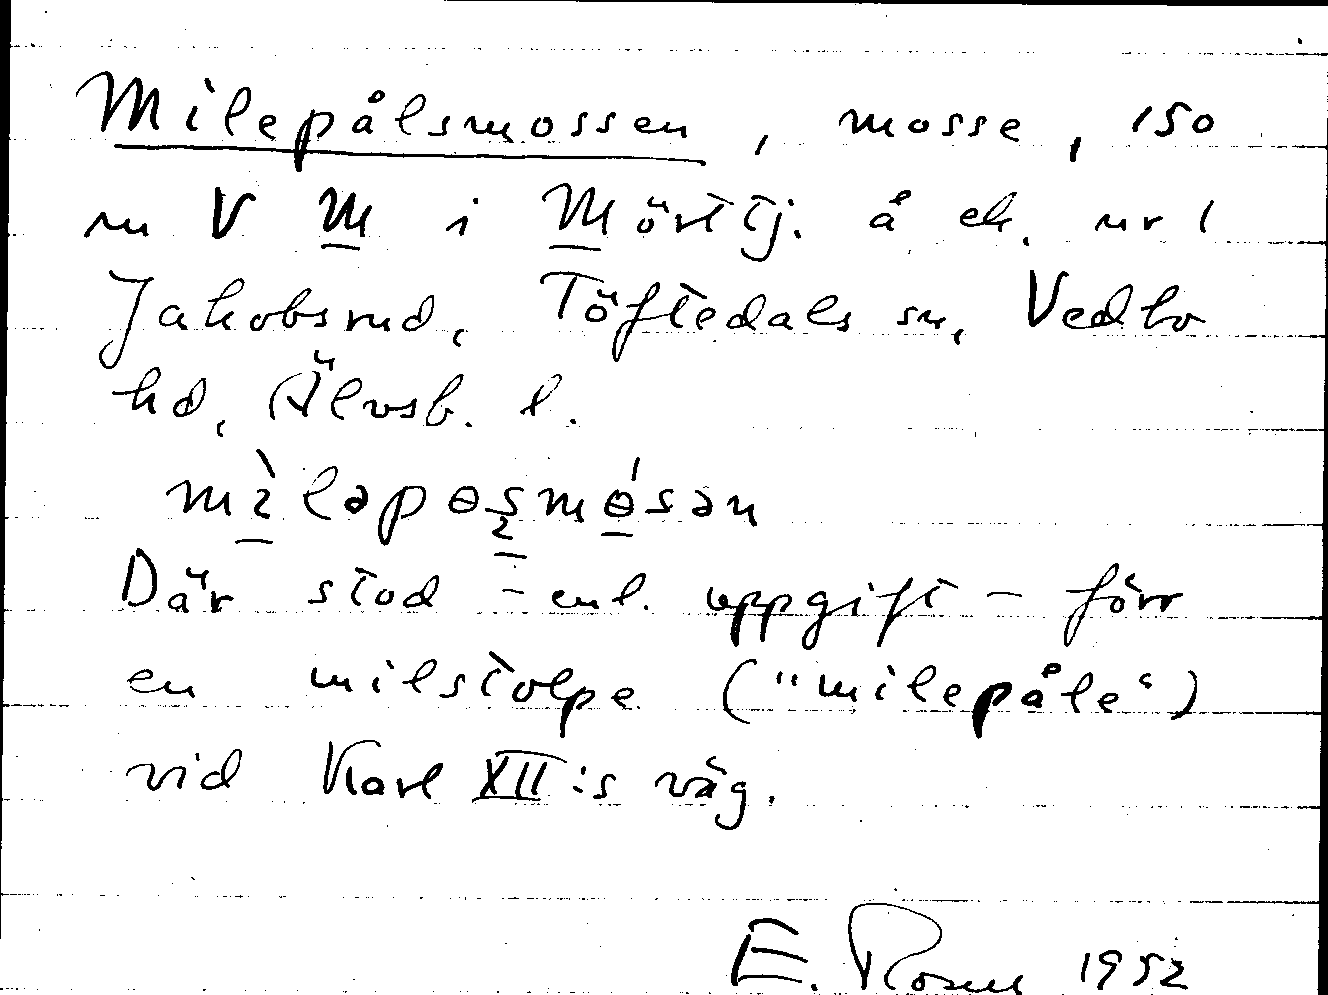 Milepålsmossen, mosse, 150
m V M i Mörttj. å ek. nr 1
Jakobsrud, Töftedals sn, Vedbo
hd, Älvsb. l.
mìləpɵşmɵ́sən
Där stod - enl. uppgift - förr
en milstolpe ("milepåle")
vid Karl XII:s väg.
E. Rosell 1952